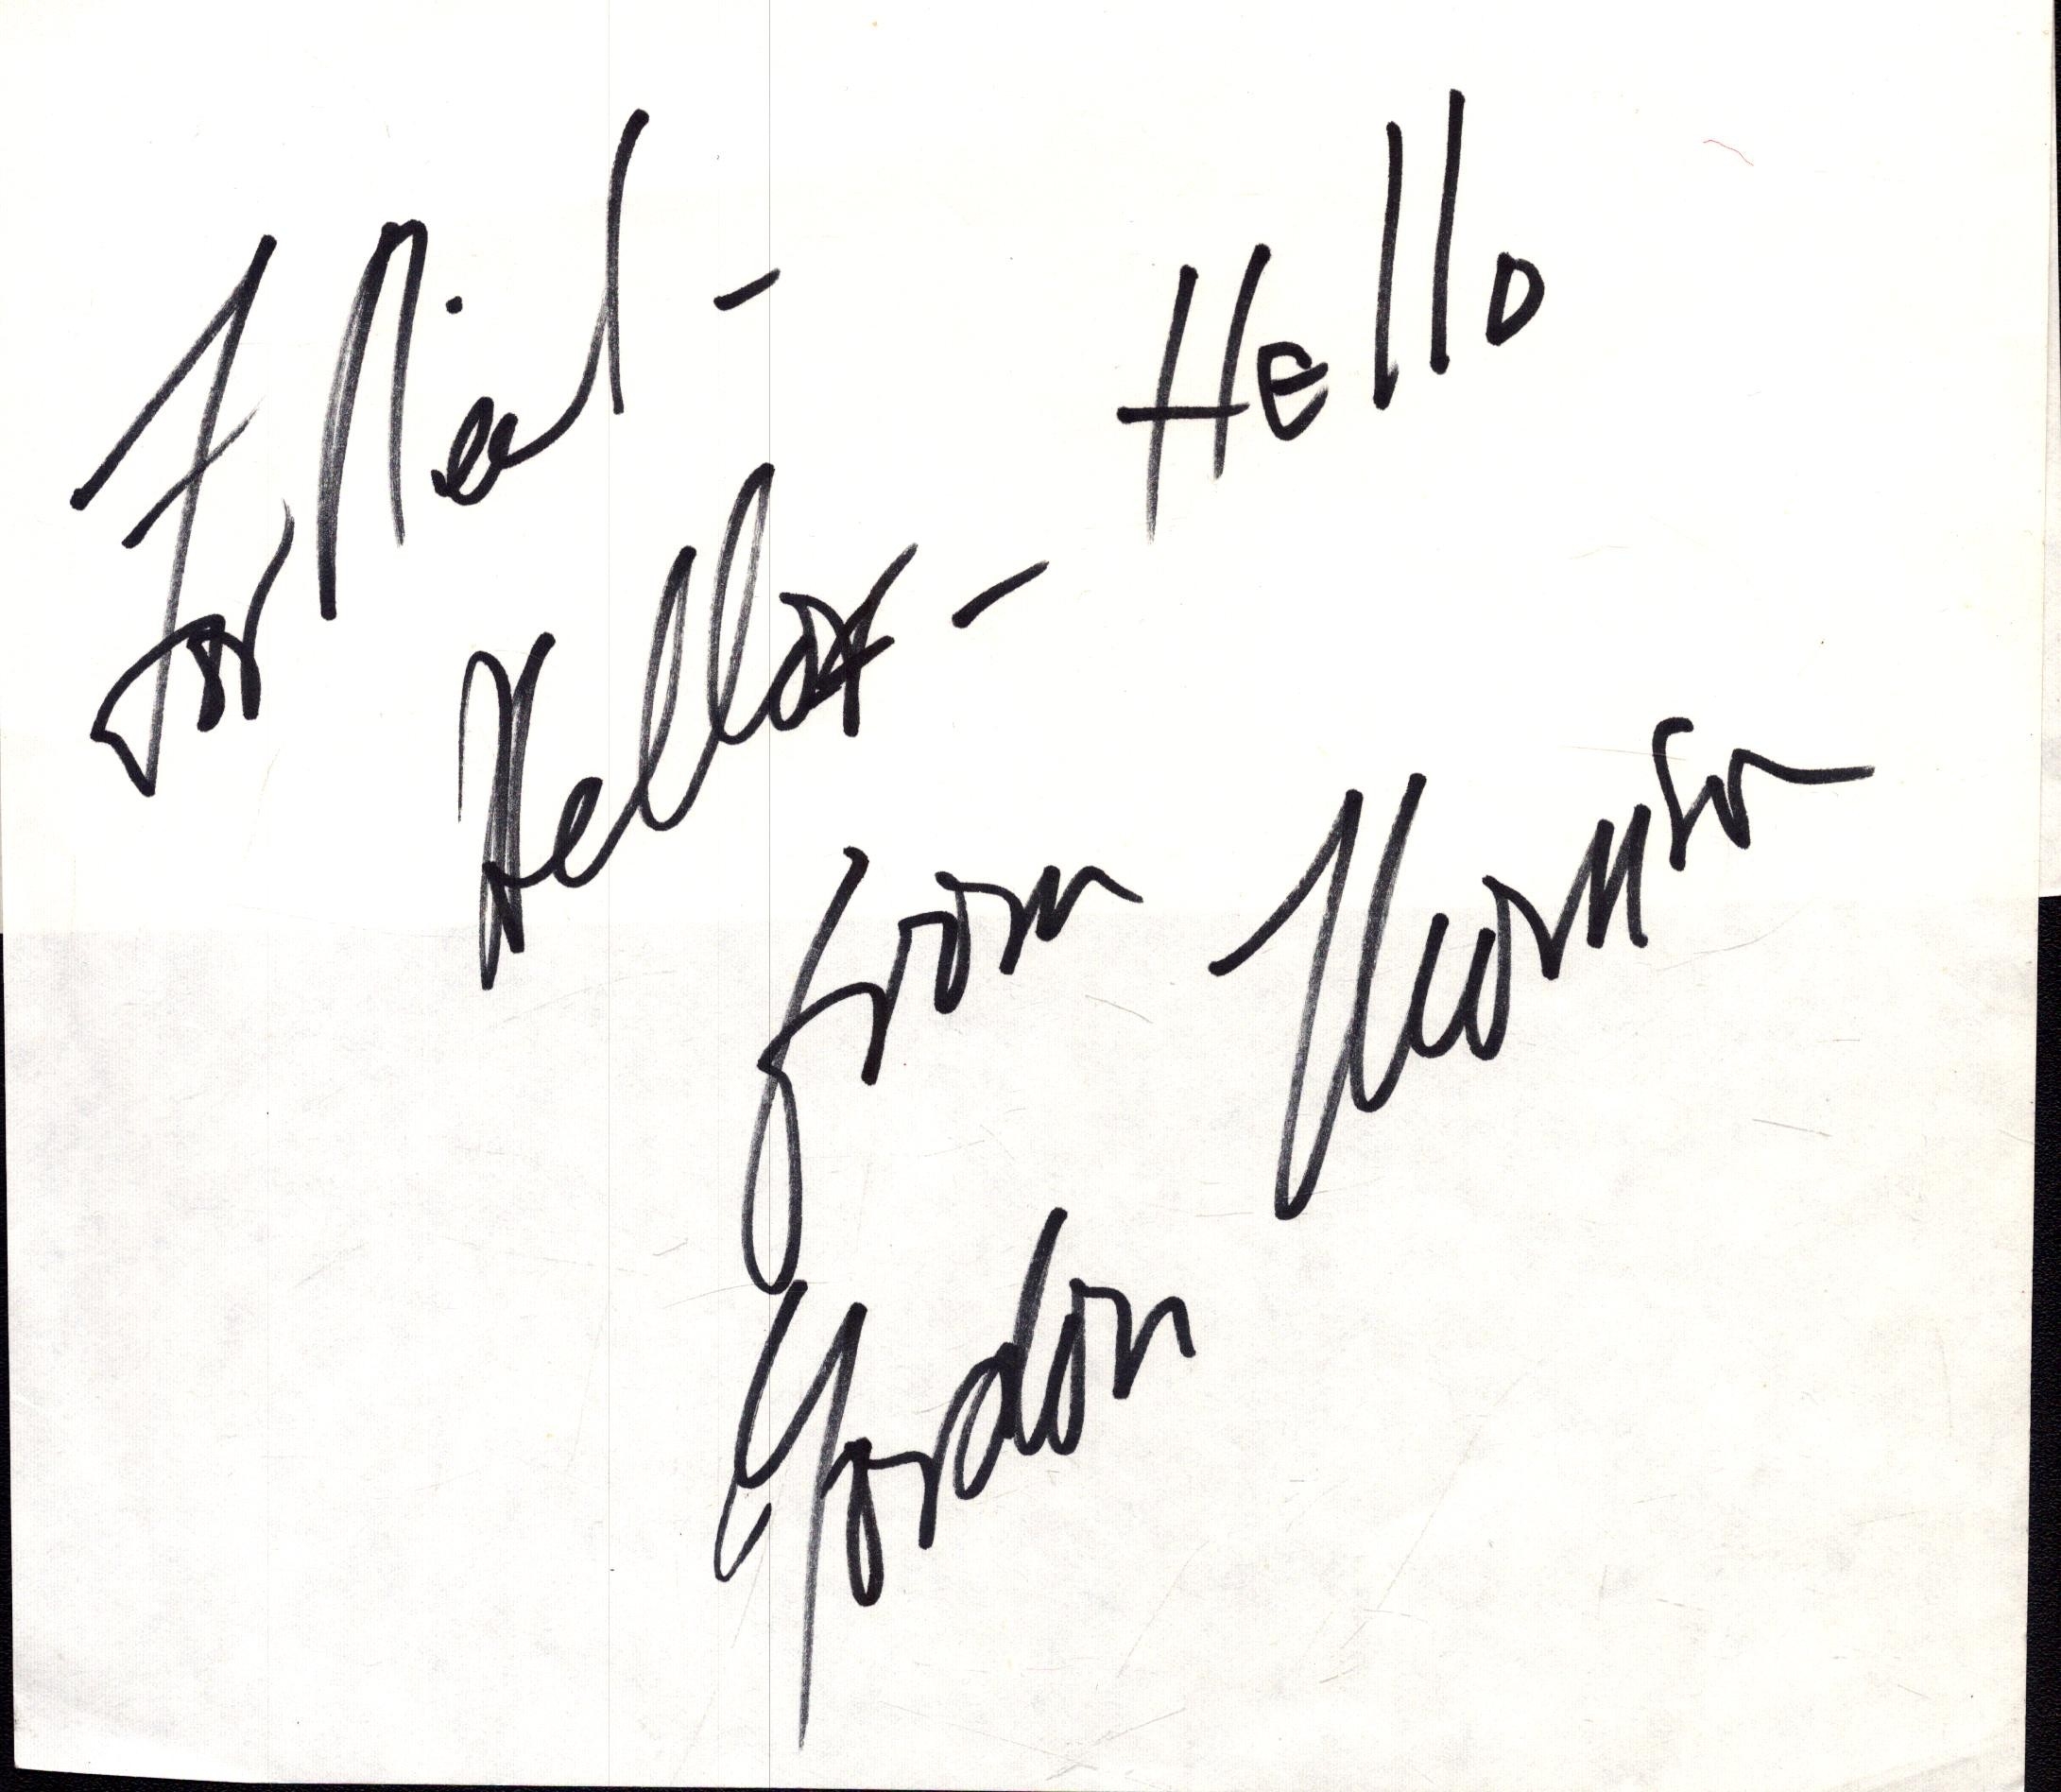 For Niel - Hello
Hello -
from Thomson
Gordon